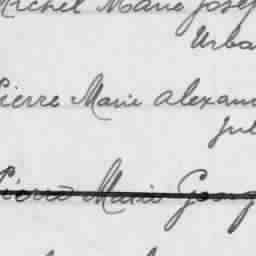 Michel Marie Josep
Urba
Pierre Marie Alexan
Jul
Pierre Marie Georg